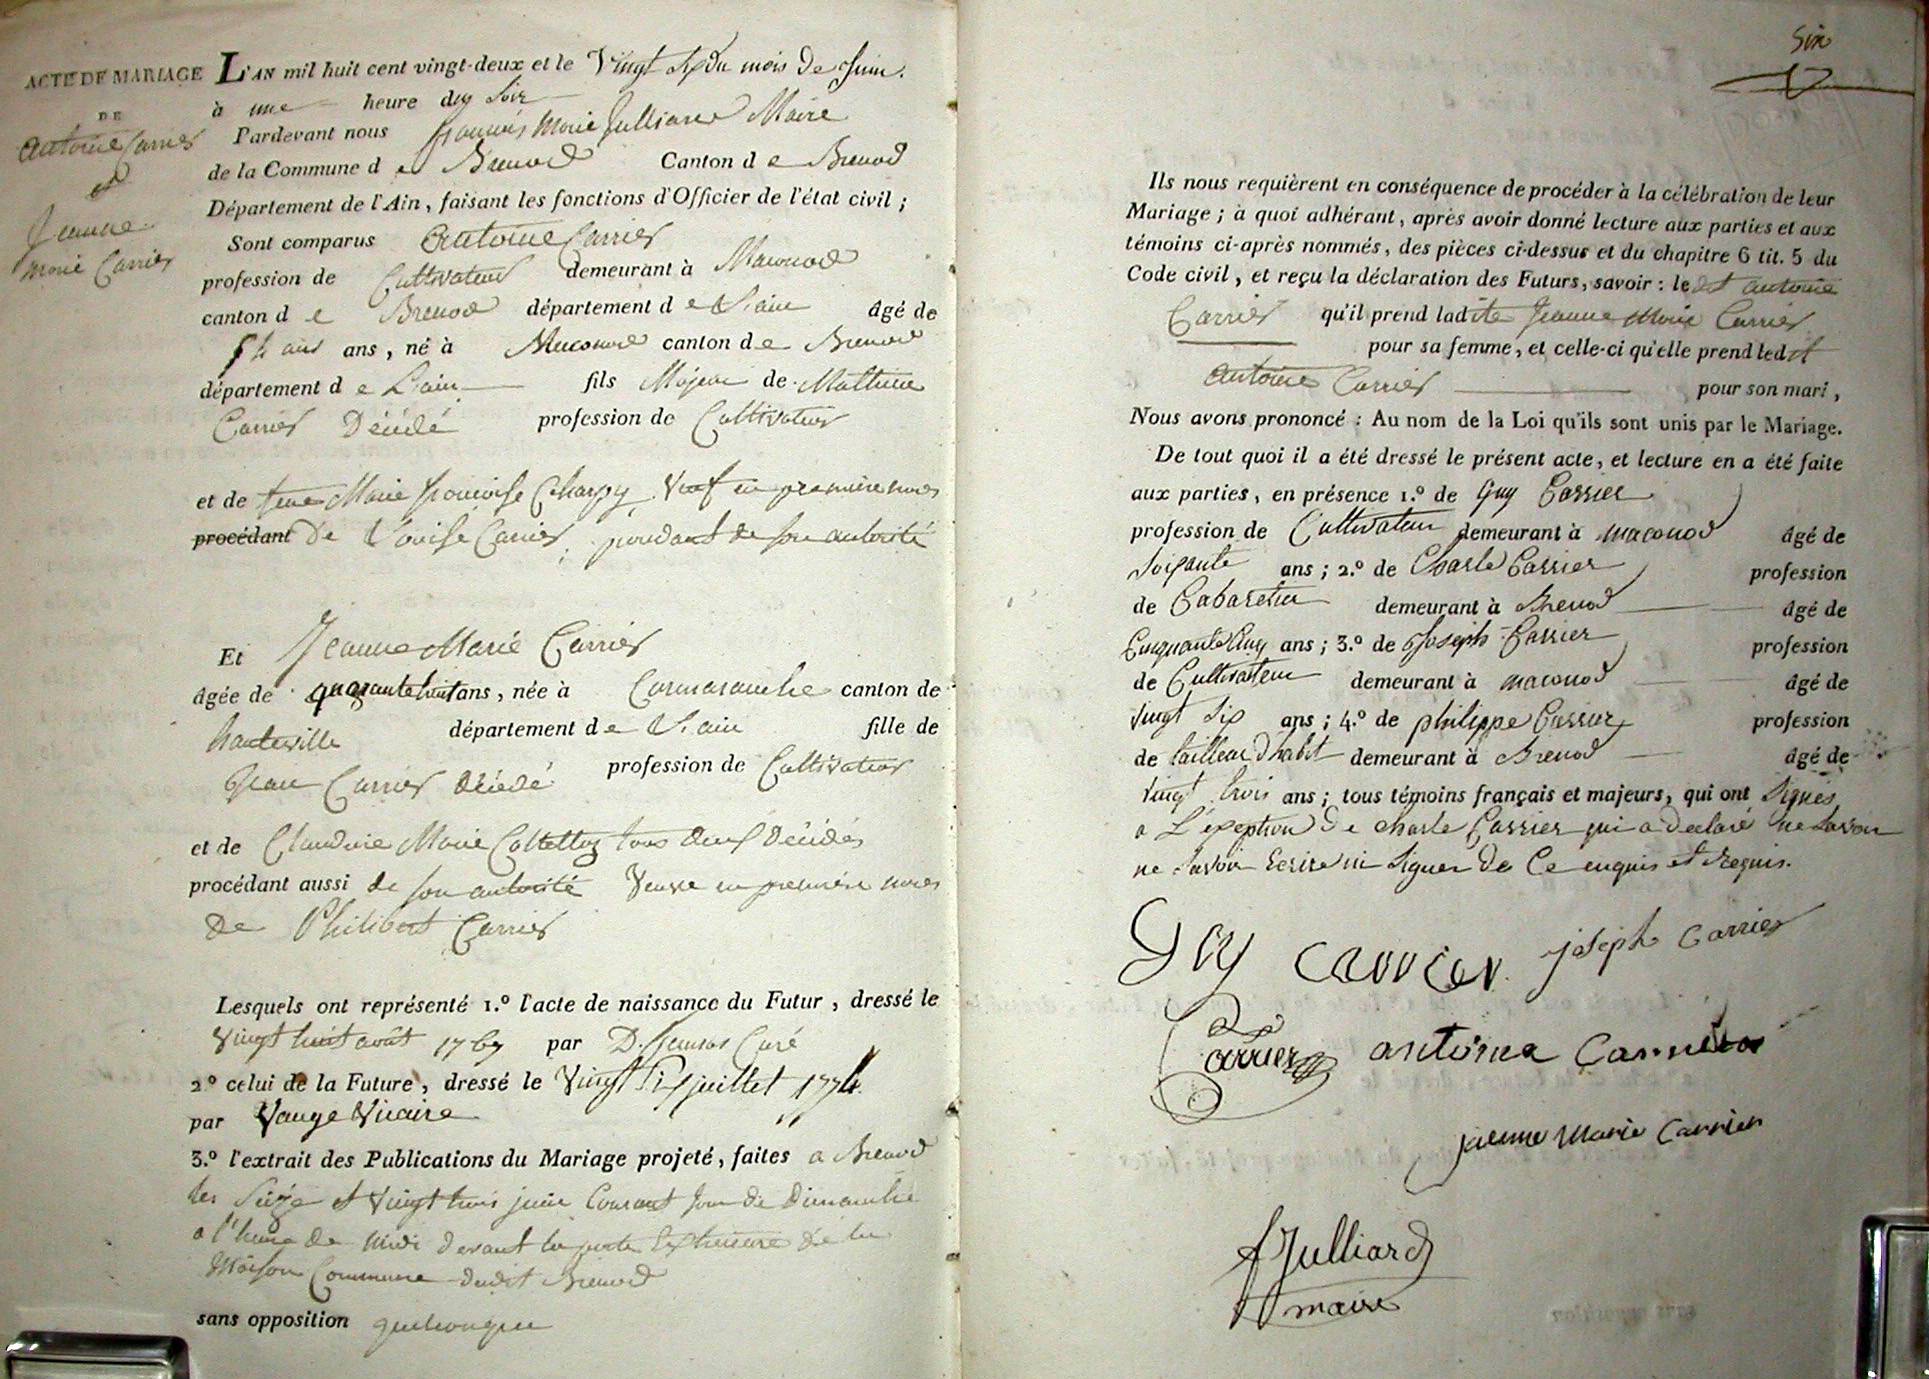 ACTE DE MARIAGE
DE
Antoine Carrier
et
Jeanne
Marie Carrier
L'AN mil huit cent vingt-deux et le Vingt Six du mois de Juin.
à une heure du Soir
Pardevant nous François Marie Julliard Maire
de la Commune de Brenod Canton de Brenod
Département de l'Ain, faisant les fonctions d'Officier de l'état civil ;
Sont comparus Antoine Carrier
profession de Cultivateur demeurant à Maconod
canton de Brenod département de L'ain âgé de
54 ans ans, né à Maconod canton de Brenod
département de L'ain fils Majeur de Mathieu
Carrier Décédé profession de Cultivateur
et de feue Marie françoise Charpy Veuf en première noces
procédant De Louise Carrier, procédant de son autorité
Et Jeanne Marie Carrier
âgée de quarante huit ans, née à Cormaranche canton de
hauteville département de L'ain fille de
Jean Carrier décédé profession de Cultivateur
et de Claudine Marie Collettaz tous deux Décédés
procédant aussi de son autorité Veuve en première noces
de Philibert Carrier
Lesquels ont représenté 1.º l'acte de naissance du Futur, dressé le
Vingt huit août 1767 par D. Curé
2º celui de la Future, dressé le Vingt Six juillet 1774
par Vauge Vicaire
3.º l'extrait des Publications du Mariage projeté, faites a Brenod
les Seize et Vingt trois juin Courant Jour de Dimanche
a l'heure de midi devant la porte Exterieure de la
Maison Commune dudit Brenod
sans opposition quelconque
Six
Ils nous requièrent en conséquence de procéder à la célébration de leur
Mariage ; à quoi adhérant, après avoir donné lecture aux parties et aux
témoins ci-après nommés, des pièces ci-dessus et du chapitre 6 tit. 5 du
Code civil, et reçu la déclaration des Futurs, savoir : ledit antoine
Carrier qu'il prend ladite Jeanne Marie Carrier
pour sa femme, et celle-ci qu'elle prend ledit
antoine Carrier pour son mari,
Nous avons prononcé : Au nom de la Loi qu'ils sont unis par le Mariage.
De tout quoi il a été dressé le présent acte, et lecture en a été faite
aux parties, en présence 1.º de Guy Carrier
profession de Cultivateur demeurant à maconod âgé de
Soixante ans ; 2.º de Charle Carrier profession
de Cabaretier demeurant à Brenod âgé de
Cinquante Cinq ans ; 3.º de Joseph Carrier profession
de Cultivateur demeurant à maconod âgé de
vingt Six ans ; 4.º de philippe Carrier profession
de tailleur d'habit demeurant à Brenod âgé de
vingt trois ans ; tous témoins français et majeurs, qui ont Signés
a L'exeption de charle Carrier qui a declaré ne Savoir
ne Savoir Ecrire ni Signer de Ce enquis et Requis.
Guy carrier joseph carrier
Carrier antoine Carrier
jaenne marie carrier
fJulliard
maire